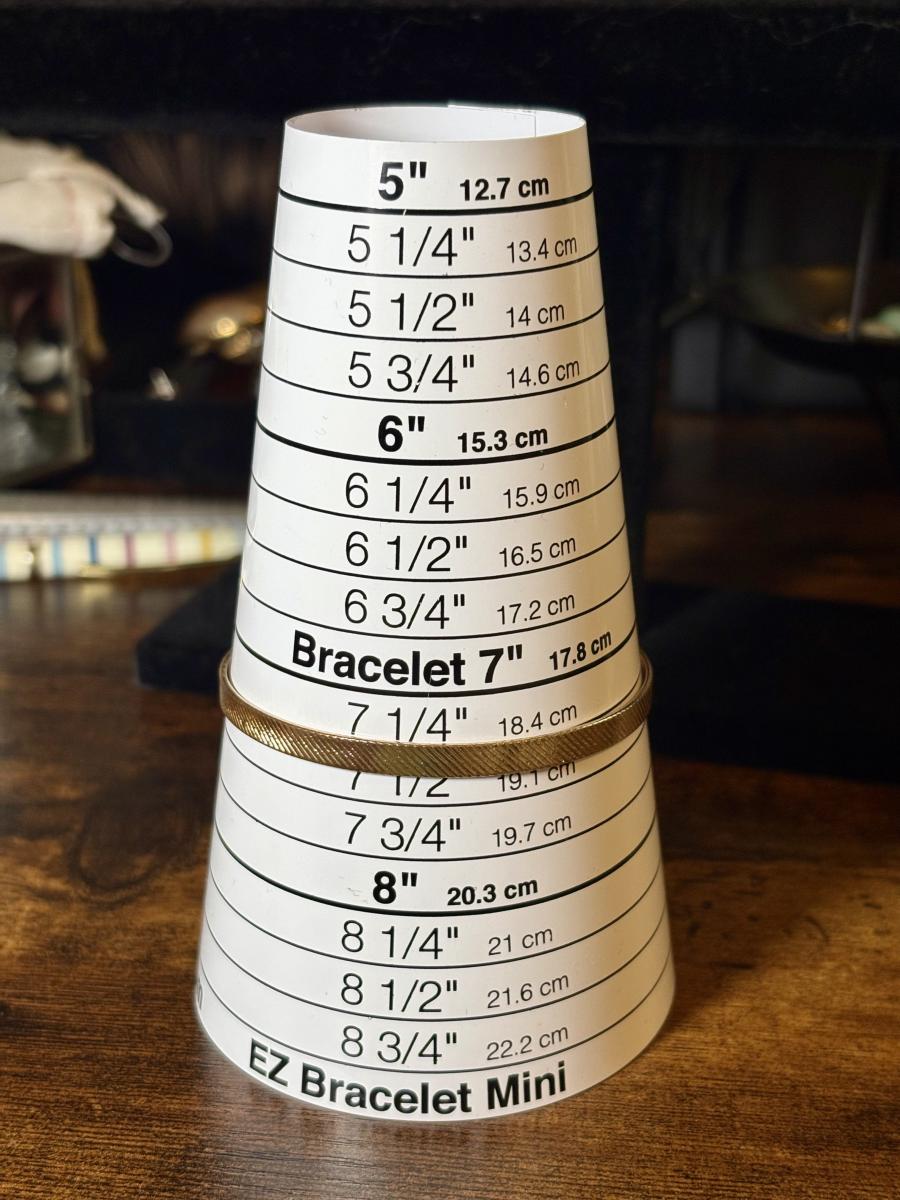 5" 12.7 cm
5 1/4" 13.4 cm
5 1/2" 14 cm
5 3/4" 14.6 cm
6" 15.3 cm
6 1/4" 15.9 cm
6 1/2" 16.5 cm
6 3/4" 17.2 cm
Bracelet 7" 17.8 cm
7 1/4" 18.4 cm
7 1/2" 19.1 cm
7 3/4" 19.7 cm
8" 20.3 cm
8 1/4" 21 cm
8 1/2" 21.6 cm
8 3/4" 22.2 cm
EZ Bracelet Mini